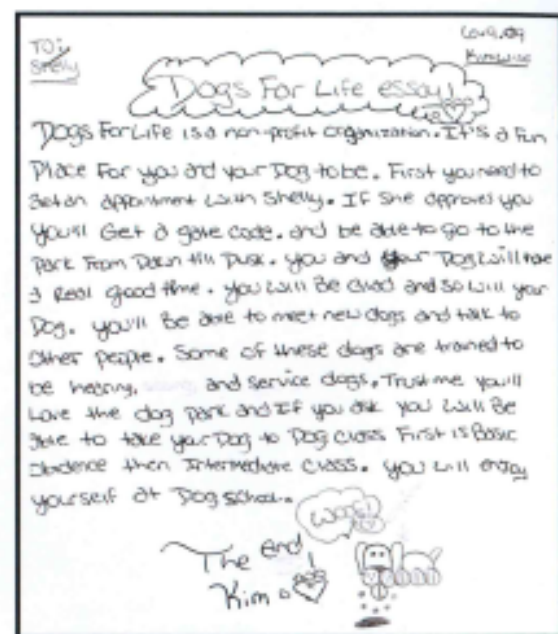 TO:
Shelly
Dogs For Life essay!
Dogs For Life is a non-profit organization. It's a Fun
Place For you and your Dog to be. First you need to
Get an appointment with Shelly. If She approves you
You'll Get a gate code. and be able to go to the
Park From Dawn till Dusk. you and your Dog will have
a Real good time. you will Be Glad and so will your
Dog. you'll Be able to meet new dogs and talk to
Other People. Some of these dogs are trained to
be hearing, and service dogs. Trust me you'll
Love the dog park and If you ask you will Be
able to take your Dog to Dog class First is Basic
Obedience then Intermediate class. you will enjoy
yourself at Dog school.
Woof!
The end!
Kim